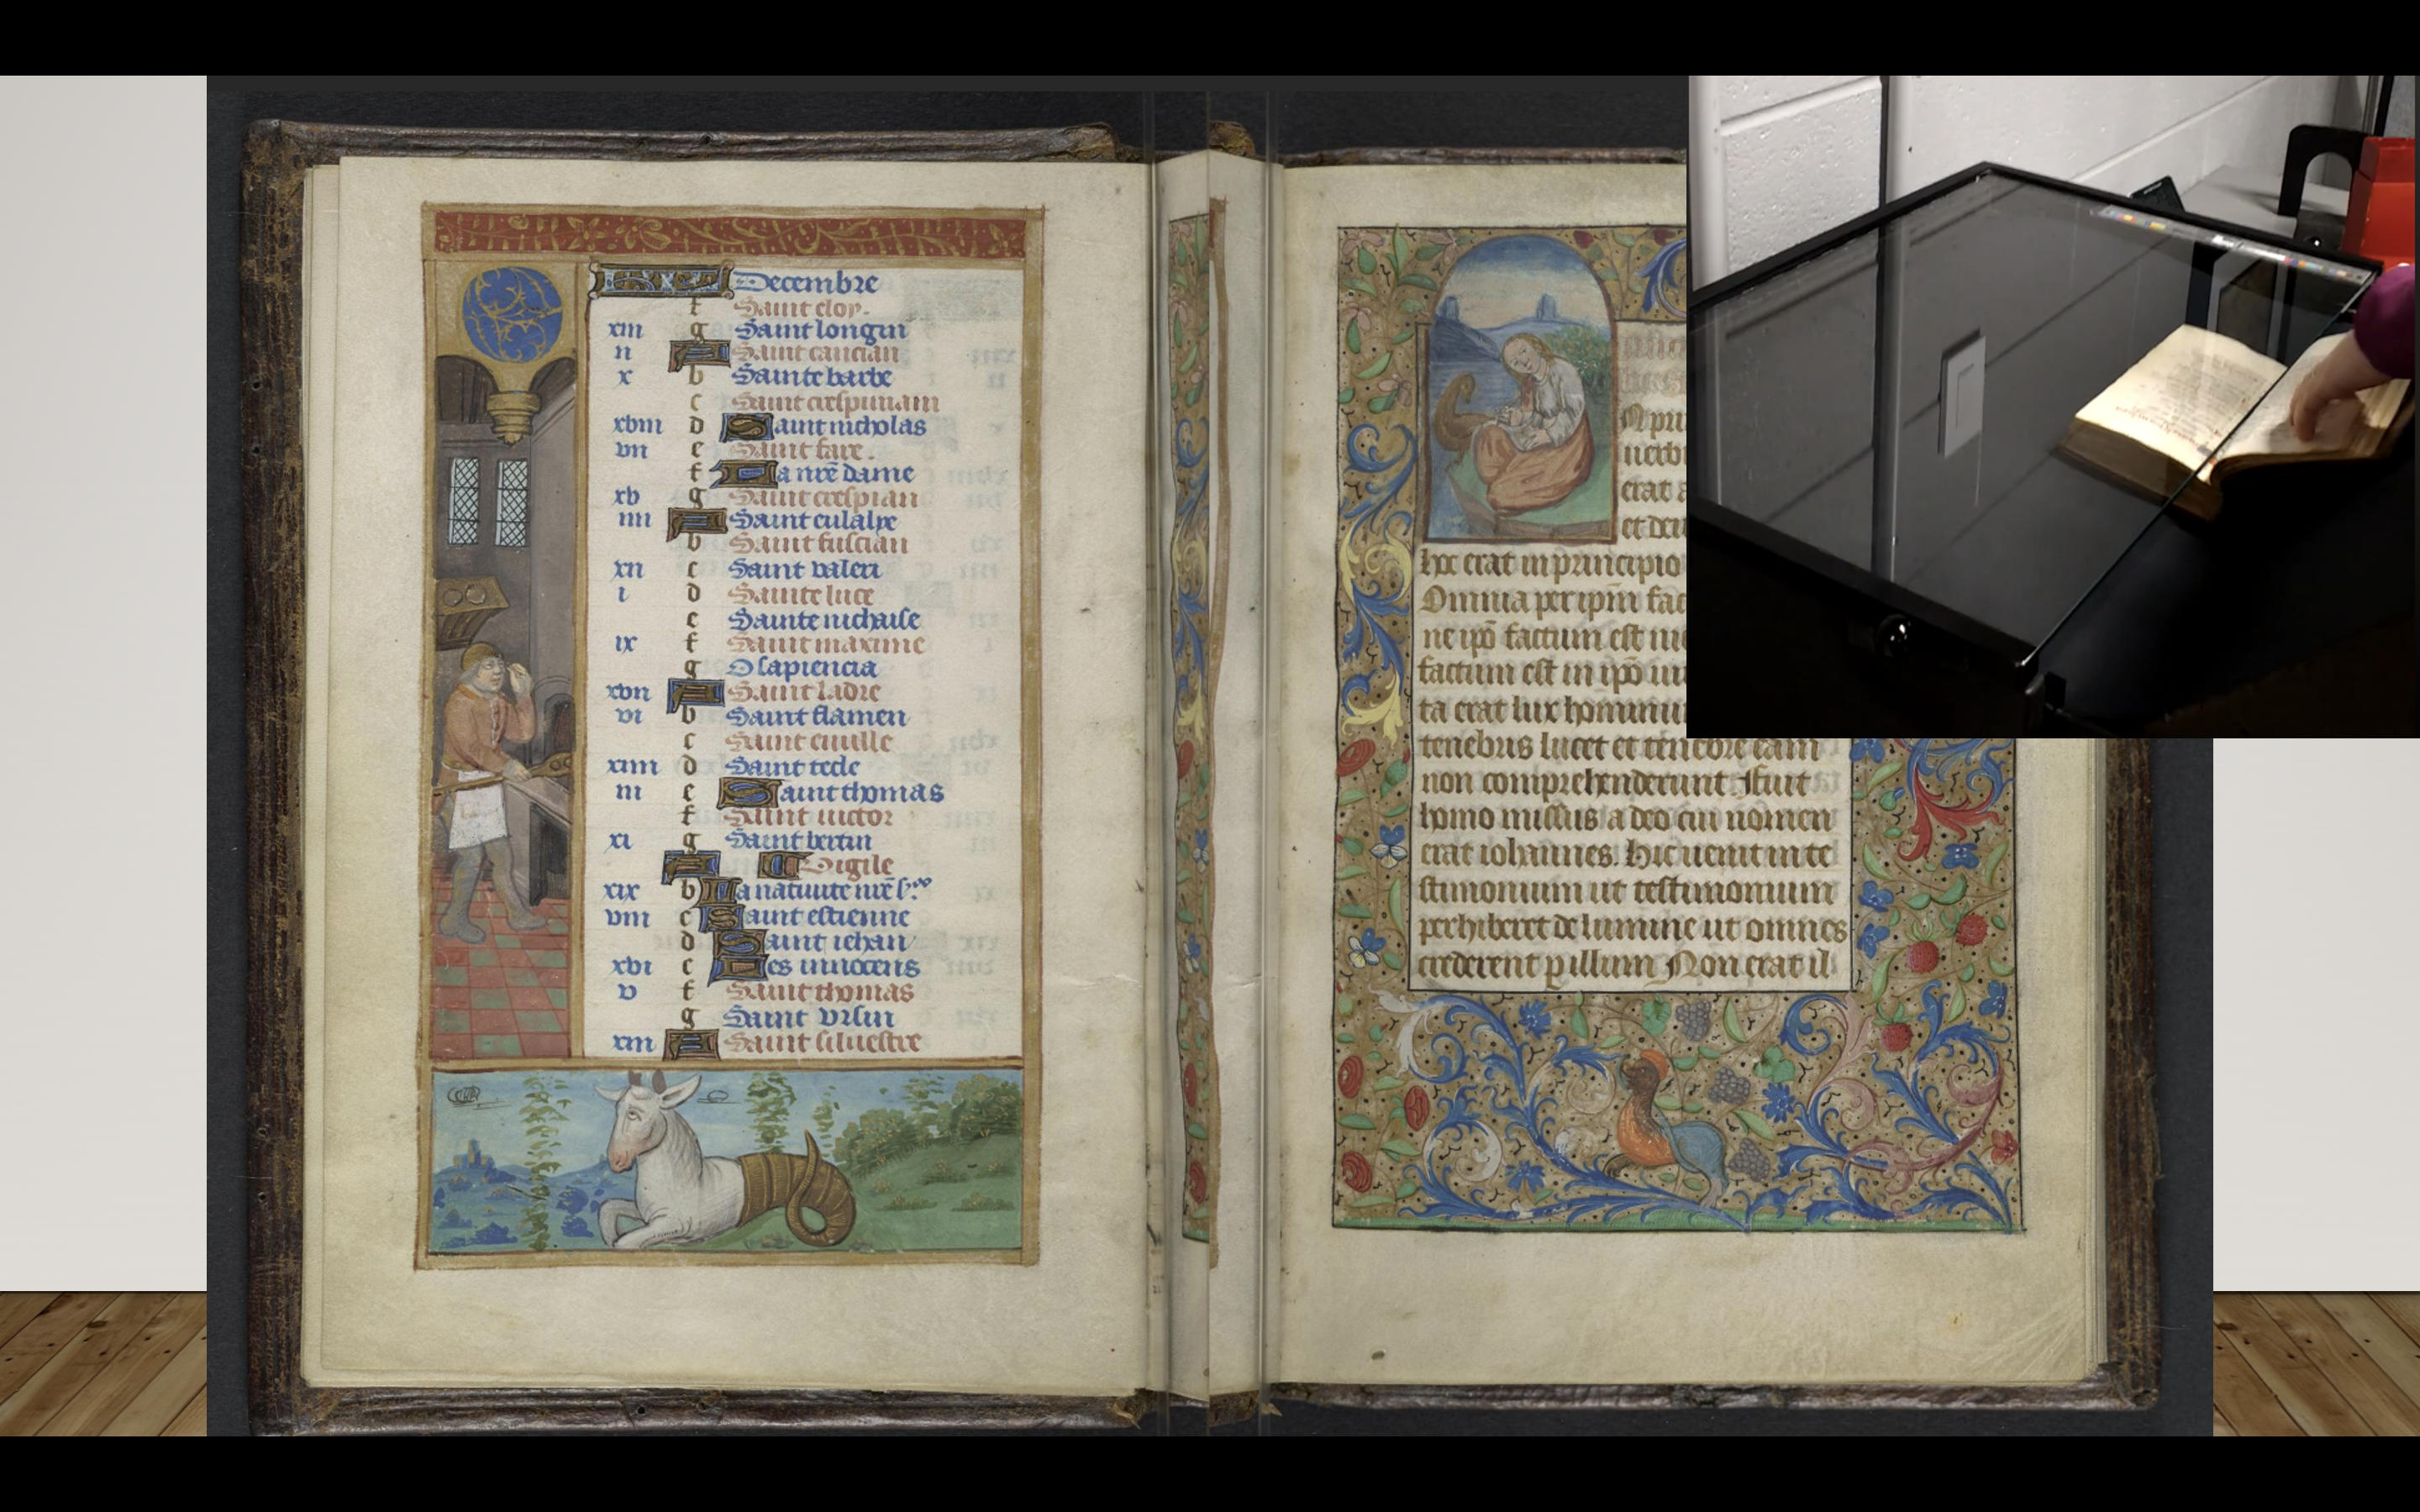 Decembre
f Saint eloy.
xiii g Saint longin
ii A Saint caucian
x b Sainte barbe
c Saint crespinian
xviii d Saint nicholas
vii e Saint fare.
f La nr̄e dame
xv g Saint crespian
iiii A Saint eulalye
b Saint fuscian
xii c Saint valeri
i d Sainte luce
e Sainte nichaise
ix f Saint maxime
g O sapiencia
xvii A Saint ladre
vi b Saint flamen
c Saint
xiiii d Saint tecle
iii e Saint thomas
f Saint victor
xi g Saint bertin
A Vigile
xix b La nativite nr̄e
viii c Saint estienne
d Saint iehan
xvi e Les innocens
v f Saint thomas
g Saint ursin
xiii A Saint silvestre
erat
et deu
hoc erat in principio
Omnia per ip̄m fac
ne ip̄o factum est ni
factum est in ip̄o ui
ta erat lux hominu
tenebris lucet et tenebre eam
non comprehenderunt Fuit
homo missus a deo cui nomen
erat iohannes. Hic uenit in te
stimonium ut testimonium
perhiberet de lumine ut omnes
crederent p illum Non erat il